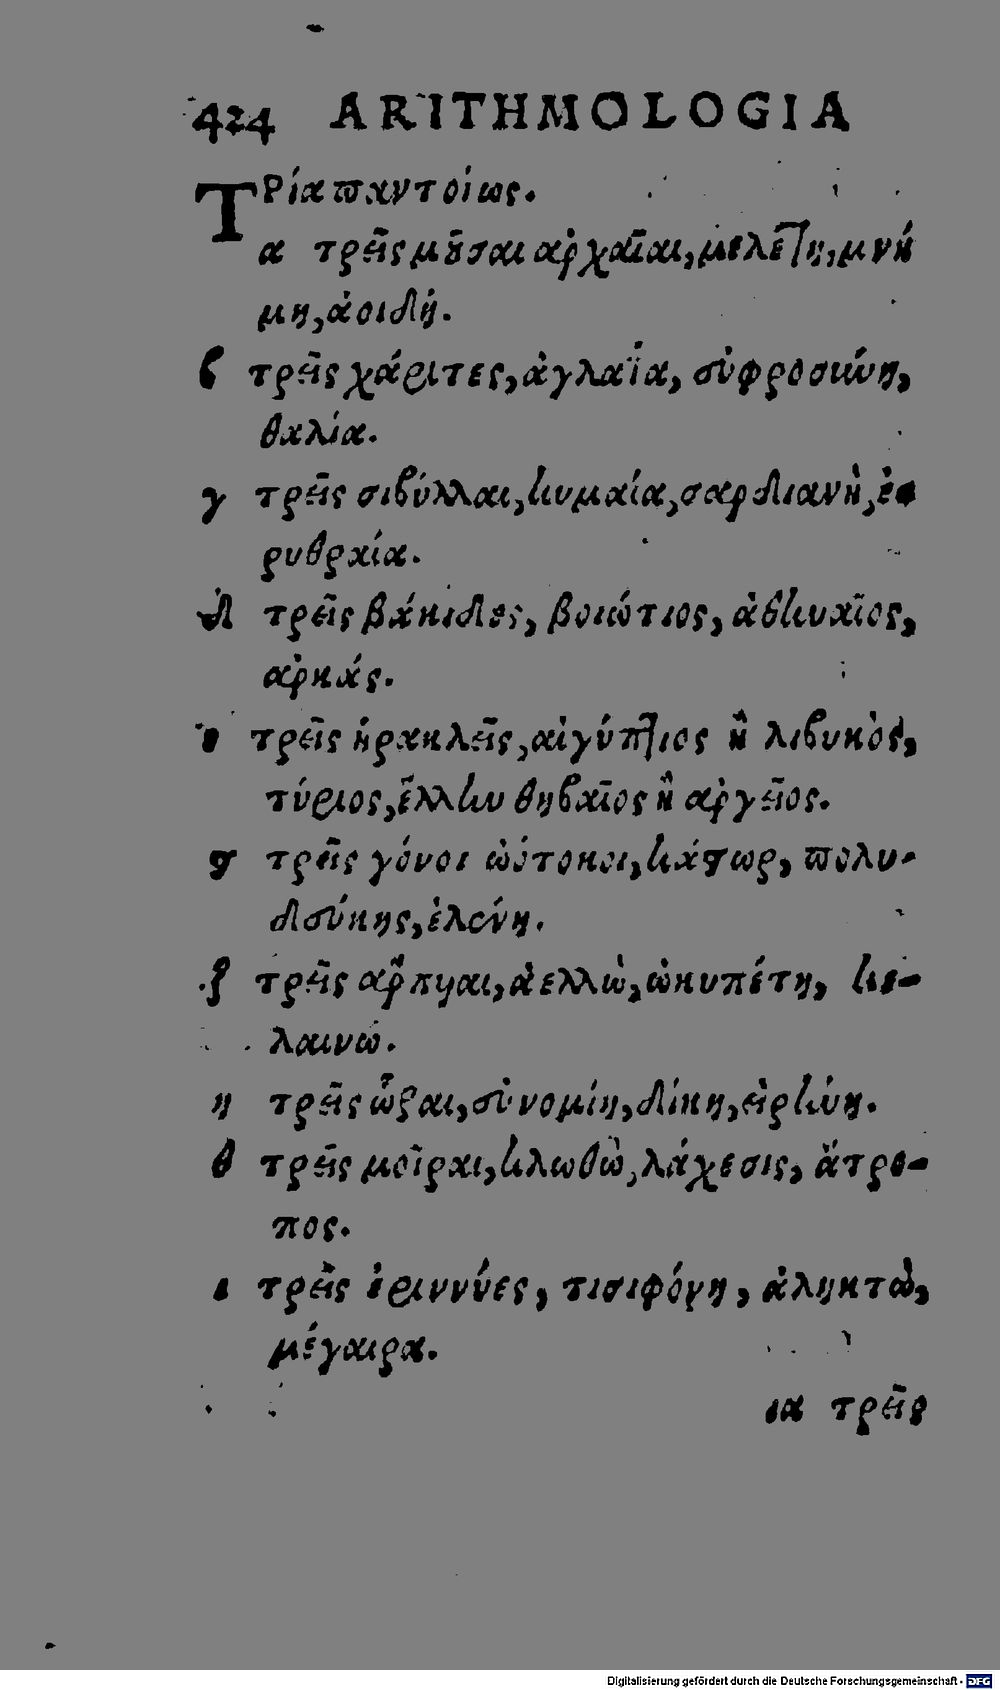 424 ARITHMOLOGIA
ΤΡία παντοίως.
α τρεῖς μοῦσαι ἀρχαῖαι, μελέτη, μνή
μη, ἀοιδή.
β τρεῖς χάριτες, ἀγλαΐα, εὐφροσύνη,
θαλία.
γ τρεῖς σιβύλλαι, κυμαία, σαρδιανὴ, ἐ-
ρυθραία.
δ τρεῖς βάκιδες, βοιώτιος, ἀθηναῖος,
ἀρκάς.
ε τρεῖς ἡρακλεῖς, αἰγύπτιος ἢ λιβυκὸς,
τύριος, ἕλλην θηβαῖος ἢ ἀργεῖος.
ϛ τρεῖς γόνοι ὠότοκοι, κάστωρ, πολυ-
δεύκης, ἑλένη.
ζ τρεῖς ἅρπυιαι, ἀελλὼ, ὠκυπέτη, κε-
λαινώ.
η τρεῖς ὧραι, εὐνομίη, δίκη, εἰρήνη.
θ τρεῖς μοῖραι, κλωθὼ, λάχεσις, ἄτρο-
πος.
ι τρεῖς ἐριννύες, τισιφόνη, ἀληκτὼ,
μέγαιρα.
ια τρεῖς
Digitalisierung gefördert durch die Deutsche Forschungsgemeinschaft - DFG